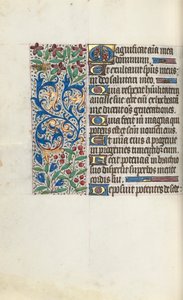 Magnificat aīa mea
dominum.
Et exultavit spūs meus
in deo salutari meo.
Quia respexit humilitatem
ancille sue ecce enī ex hoc beatā
me dicent oēs generationes.
Quia fecit m̄ magna qui
potens est et scm̄ nomen eius.
Et mīa eius a progenie
in progenies timentibus eum.
Fecit potenciā in brachio
suo dispersit superbos mente
cordis sui.
Deposuit potentes de sede